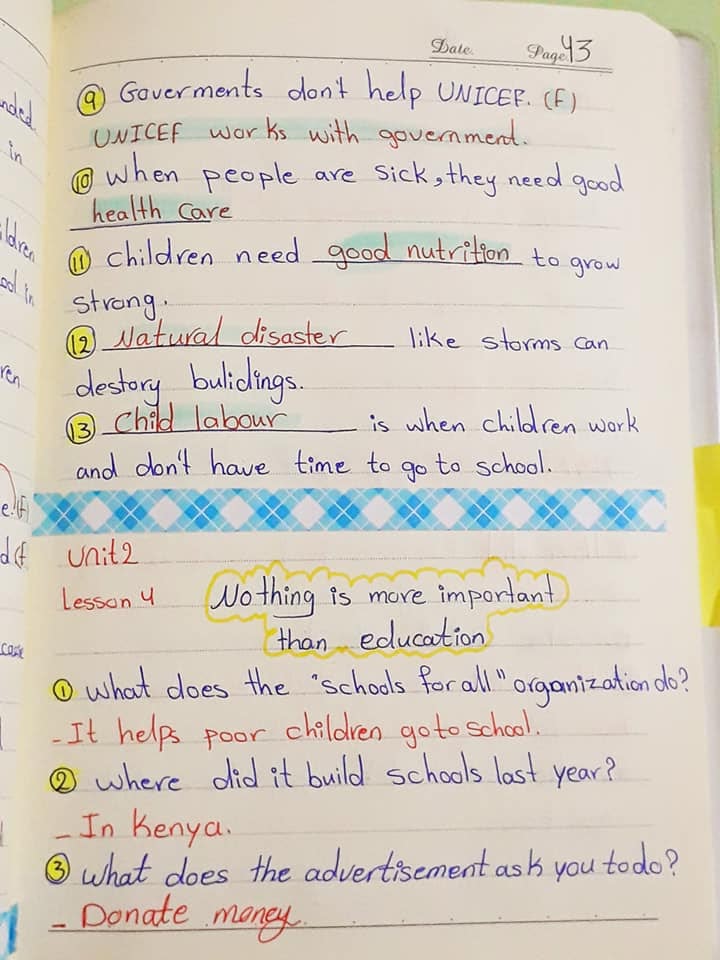 Date.
Page. 43
9 Goverments don't help UNICEF. (F)
UNICEF works with government.
10 When people are sick, they need good
health care
11 children need good nutrition to grow
strong.
12 Natural disaster like storms can
destory bulidings.
13 Child labour is when children work
and don't have time to go to school.
Unit 2
Lesson 4
Nothing is more important
than education
1 What does the "schools for all" organization do?
- It helps poor children go to school.
2 Where did it build schools last year?
- In Kenya.
3 What does the advertisement ask you to do?
- Donate money.
nded.
in
ildren
ool in
ren
e.(F)
d(f
case